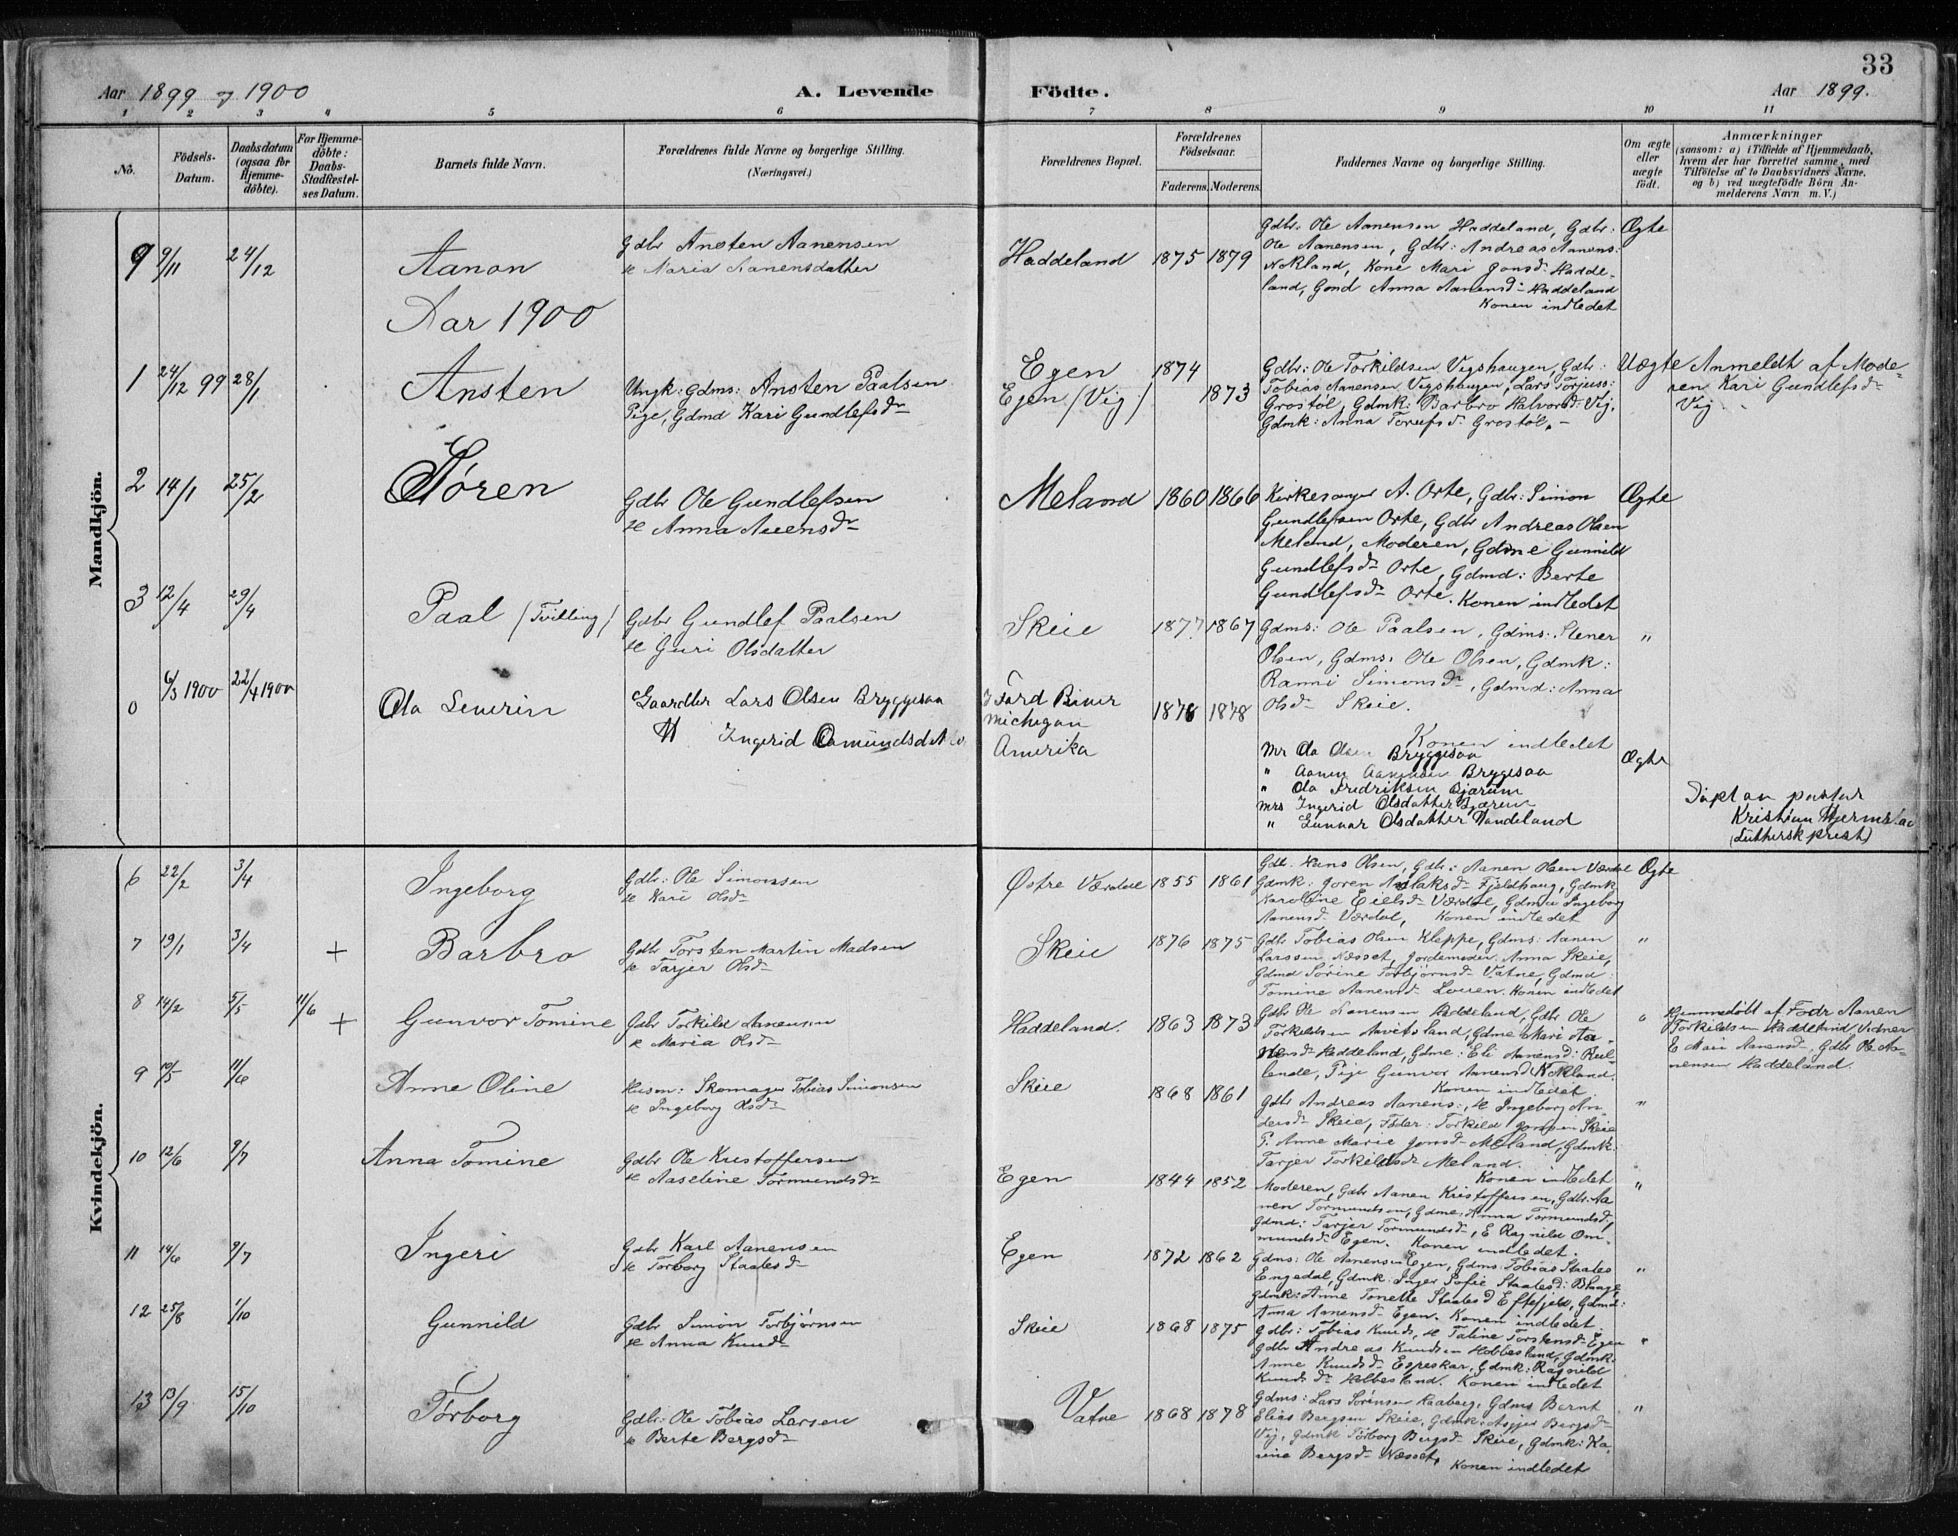 33
Aar 1899 og 1900
A. Levende
Födte.
Aar 1899.
1 2 3 4 5 6 7 8 9 10 11
No.
Födsels-
Datum.
Daabsdatum
(ogsaa for
Hjemme-
döbte).
For Hjemme-
döbte:
Daabs-
Stadfæstel-
ses Datum.
Barnets fulde Navn.
Forældrenes fulde Navne og borgerlige Stilling.
(Næringsvei.)
Forældrenes Bopæl.
Forældrenes
Födselsaar.
Faderens.
Moderens.
Faddernes Navne og borgerlige Stilling.
Om ægte
eller
uægte
födt.
Anmærkninger
(saasom: a) i Tilfælde af Hjemmedaab,
hvem der har forrettet samme, med
Tilföielse af to Daabsvidners Navne,
og b) ved uægtefödte Börn An-
melderens Navn m. V.)
Mandkjön.
9 9/11 24/12
Aanon
Gdbr Ansten Aanensen
H Maria Aanensdatter
Haddeland 1875 1879
Gdbr. Ole Aanensen Haddeland, Gdbr:
Ole Aanensen, Gdbr: Andreas Aanens:
Nokland, Kone Mari Jonsd: Hadde-
land, Gmd Anna Aanensd- Haddeland
Konen indledet
Ægte
Aar 1900
1 24/12 99 28/1
Ansten
Ungk: Gdms: Ansten Paalsen
Pige, Gdmd Kari Gundlefsdr
Egen 1874
Egen (Vig) 1873
Gdbr: Ole Torkildsen Vigshaugen, Gdbr:
Tobias Aanensen Vigshaugen, Lars Torjuss:
Grostøl, Gdmk: Barbro Halvorsd- Vig,
Gdmk: Anna Torufsd. Grostøl.-
Uægte
Anmeldt af Mode-
ren Kari Gundlefsdr
Vig
2 14/1 25/2
Søren
Gdbr Ole Gundlefsen
H Anna Auensdr
Meland 1860 1866
Kirkesanger A. Orte, Gdbr: Simon
Gundlefsen Orte, Gdbr Andreas Olsen
Meland, Moderen, Gdme Gunnild
Gundlefsdr Orte, Gdmd: Berte
Gundlefsdr Orte. Konen indledet
Ægte
3 12/4 29/4
Paal (Tvilling)
Gdbr Gundlef Paalsen
H Guri Olsdatter
Skeie 1877 1867
Gdms: Ole Paalsen, Gdms: Stener
Olsen, Gdms: Ole Olsen, Gdmk:
Ranni Simonsdr, Gdmd: Anna
Olsd- Skeie.
Konen indledet
"
0 6/3 1900 22/4 1900
Ola Severin
Gaardbr Lars Olsen Bryggesaa
H Ingerid Omundsdatter
I Ford River
Michigan
Amerika
1876 1878
Mr Ola Olsen Bryggesaa
" Aanen Aanensen Bryggesaa
" Ola Fredriksen Bjærum
Mrs Ingerid Olsdatter Bjærum
" Gunvar Olsdatter Handeland
Ægte
Døpt av pastor
Kristian
(Luthersk prest)
Kvindekjön.
6 22/2 3/4
Ingeborg
Gdbr: Ole Simonsen
H Kari Olsdr
Østre Værdal 1855 1861
Gdb. Hans Olsen, Gdbr: Aanen Olsen Værdal
Gdmk: Joren Aslaksdr Fjeldhaug, Gdmk
Karoline Eielsd- Værdal, Gdmk Ingeborg
Aanensd- Værdal, Konen indledet
Ægte
7 19/1 3/4 +
Barbro
Gdbr Torsten Martin Madsen
H Tarjer Olsdr
Skeie 1876 1875
Gdbr Tobias Olsen Kleppe, Gdms: Aanen
Larssen Næsset, Jordemoder Anna Skeie,
Gdmd Sørine Torbjørnsd- Vatne, Gdmd:
Tomine Aanensd- Louen. Konen indledet
"
8 14/2 5/5 11/6 +
Gunvor Tomine
Gdbr Torkild Aanensen
H Maria Olsdr
Haddeland. 1863 1873
Gdbr Ole Aanensen Haddeland, Gdbr Ole
Torkildsen Aavitsland, Gdme Mari Aa-
nensdr Haddeland, Gdme: Eli Aanensd:
lande, Pige Gunvor Aanensd Nokland.
Konen indledet
"
Hjemmedøbt af Fadr Aanen
Torkildsen Haddeland, Vidner
E Mari Aanensdr, Gdbr Ole Aa-
nensen Haddeland.
9 10/5 11/6
Anne Oline
Husm: Skomager Tobias Simonsen
H Ingeborg Olsdr
Skeie 1868 1861
Gdbr Andreas Aanens:, H Ingeborg An-
dersdr Skeie, Føder: Torkild Jonsen Skeie
P. Anne Marie Jonsdr Meland, Gdmk:
Tarjer Torkildsdr Meland.
Konen indledet
"
10 12/6 9/7
Anna Tomine
Gdbr Ole Kristoffersen
H Aaseline Tormundsdr
Egen 1844 1852
Moderen, Gdbr Aanen Kristoffersen, Gdbr: Aa-
nen Tormundsen, Gdme: Anna Tormundsd:
Gdmd: Tarjer Tormundsdr, E Ragnild Om-
mundsdr Egen. Konen indledet.
"
11 14/6 9/7
Ingeri
Gdbr Karl Aanensen
H Torborg Staalesdr
Egen 1872 1862
Gdms: Ole Aanensen Egen, Gdms: Tobias Staales
Engedal, Gdmk: Inger Sofie Staalesd:
Gdmk: Anne Tonette Staalesd Eftefjeld, Gdmd:
Anna Aanensdr Egen. Konen indledet.
"
12 25/8 1/10
Gunnild
Gdbr Simon Torbjørnsen
H Anna Knudsdr
Skeie 1868 1875
Gdbr: Tobias Knuds, H Taline Torstensdr Egen
Gdbr Andreas Knudsen Hobbesland, Gdmk:
Anne Knudsdr Espeskar, Gdmk: Ragnild
Knudsdr Hobbesland. Konen indledet
"
13 13/9 15/10
Torborg
Gdbr: Ole Tobias Larsen
H Berte Bergsdr
Vatne 1868 1878
Gdms: Lars Sørensen Raaberg, Gdms Bernt
Elias Bergsen Skeie, Gdmk: Asgjer Bergsdr
Vig, Gdmk Torborg Bergsdr Skeie, Gdmk: Ka-
rine Bergsdr Næsset, Konen indledet
"